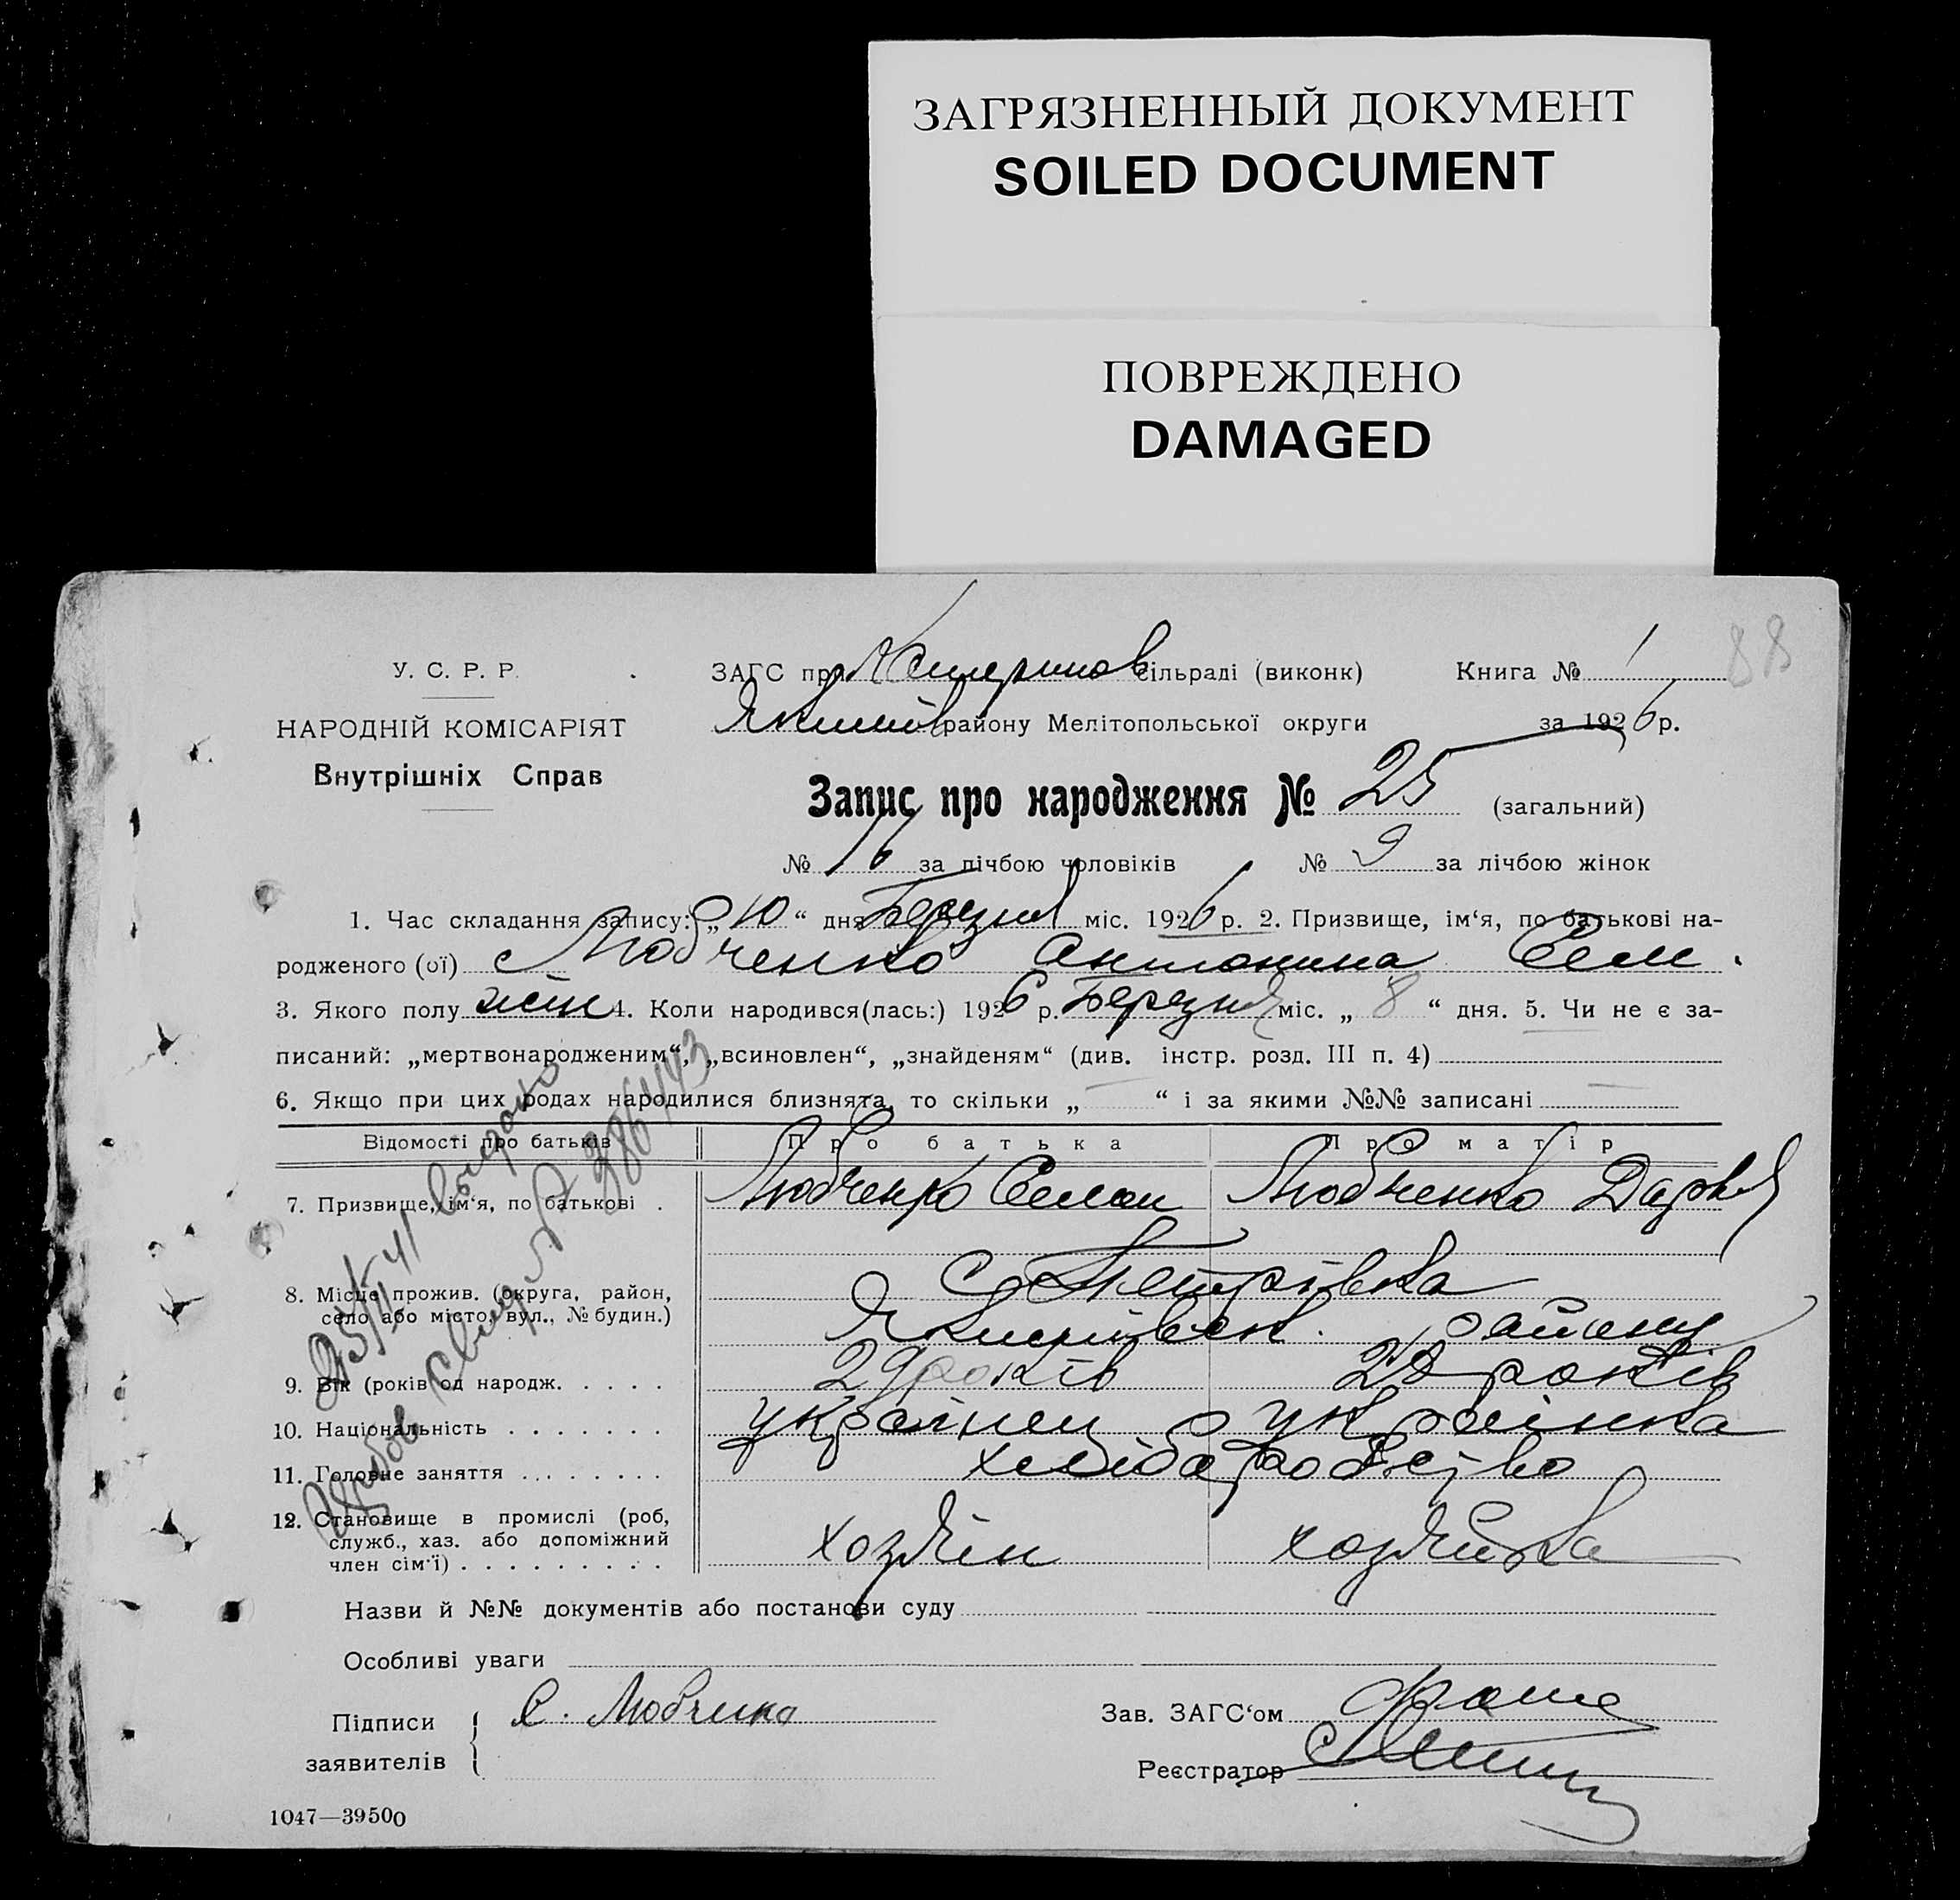 ЗАГРЯЗНЕННЫЙ ДОКУМЕНТ
SOILED DOCUMENT
ПОВРЕЖДЕНО
DAMAGED
88
У. С. Р. Р.
НАРОДНІЙ КОМІСАРІЯТ
Внутрішніх Справ
ЗАГС при сільраді (виконк) Книга № 1
району Мелітопольської округи за 1926 р.
Запис про народження № 25 (загальний)
№ 16 за лічбою чоловіків № 9 за лічбою жінок
1. Час складання запису: „10“ дня Березня міс. 1926 р. 2. Призвище, ім‘я, по батькові на-
родженого (ої) Любченко Антонина Сем.
3. Якого полу жін 4. Коли народився(лась:) 1926 р. Березня міс. „ 8 “ дня. 5. Чи не є за-
писаний: „мертвонародженим“, „всиновлен“, „знайденям“ (див. інстр. розд. III п. 4)
6. Якщо при цих родах народилися близнята, то скільки „ “ і за якими №№ записані
Відомості про батьків Про батька Про матір
7. Призвище, ім‘я, по батькові . Любченко Семен Любченко Дарья
8. Місце прожив. (округа, район,
село або місто, вул., № будин.)
Петрівка
району
9. Вік (років од народж. . . . . 29 років 28 років
10. Національність . . . . . . . українец українка
11. Головне заняття . . . . . . . . хліборобство
12. Становище в промислі (роб,
служб., хаз. або допоміжний
член сім‘ї) . . . . . . . . . хозяін хозяйка
Назви й №№ документів або постанови суду
Особливі уваги
Підписи
заявителів
С. Любченко
Зав. ЗАГС‘ом
Реєстратор
1047—39500